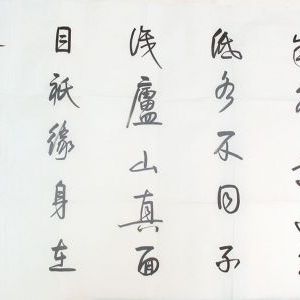 低各不同不
識廬山真面
目祇緣身在